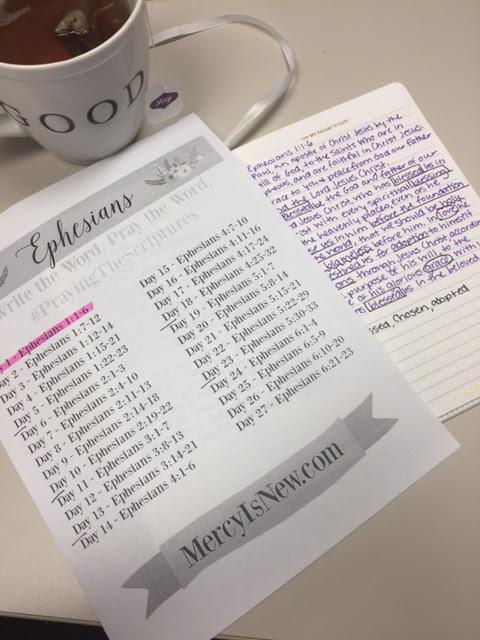 GOOD
Ephesians
Write the Word. Pray the Word.
#PrayingTheScriptures
1 - Ephesians 1:1-6
Day 2 - Ephesians 1:7-12
Day 3 - Ephesians 1:12-14
Day 4 - Ephesians 1:15-21
Day 5 - Ephesians 1:22-23
Day 6 - Ephesians 2:1-3
Day 7 - Ephesians 2:4-10
Day 8 - Ephesians 2:11-13
Day 9 - Ephesians 2:14-18
Day 10 - Ephesians 2:19-22
Day 11 - Ephesians 3:1-7
Day 12 - Ephesians 3:8-13
Day 13 - Ephesians 3:14-21
Day 14 - Ephesians 4:1-6
Day 15 - Ephesians 4:7-10
Day 16 - Ephesians 4:11-16
Day 17 - Ephesians 4:17-24
Day 18 - Ephesians 4:25-32
Day 19 - Ephesians 5:1-7
Day 20 - Ephesians 5:8-14
Day 21 - Ephesians 5:15-21
Day 22 - Ephesians 5:22-29
Day 23 - Ephesians 5:30-33
Day 24 - Ephesians 6:1-4
Day 25 - Ephesians 6:5-9
Day 26 - Ephesians 6:10-20
Day 27 - Ephesians 6:21-23
MercyIsNew.com
ON MY HEART TODAY
Ephesians 1:1-6
Paul, an apostle of Christ Jesus by the
will of God, to the saints who are in
and are faithful in Christ Jesus
grace to you & peace from God our Father
and the Lord Jesus Christ.
Blessed be the God and Father of our
Jesus Christ, who has blessed us in
with every spiritual blessing
the heavenly places, even as he
us in him before the foundation
world, that we should be holy
blameless before him. In love he
us for adoption to himself
sons through Jesus Christ, according
purpose of his will, to the
of his glorious grace with
blessed us in the beloved
chosen, adopted